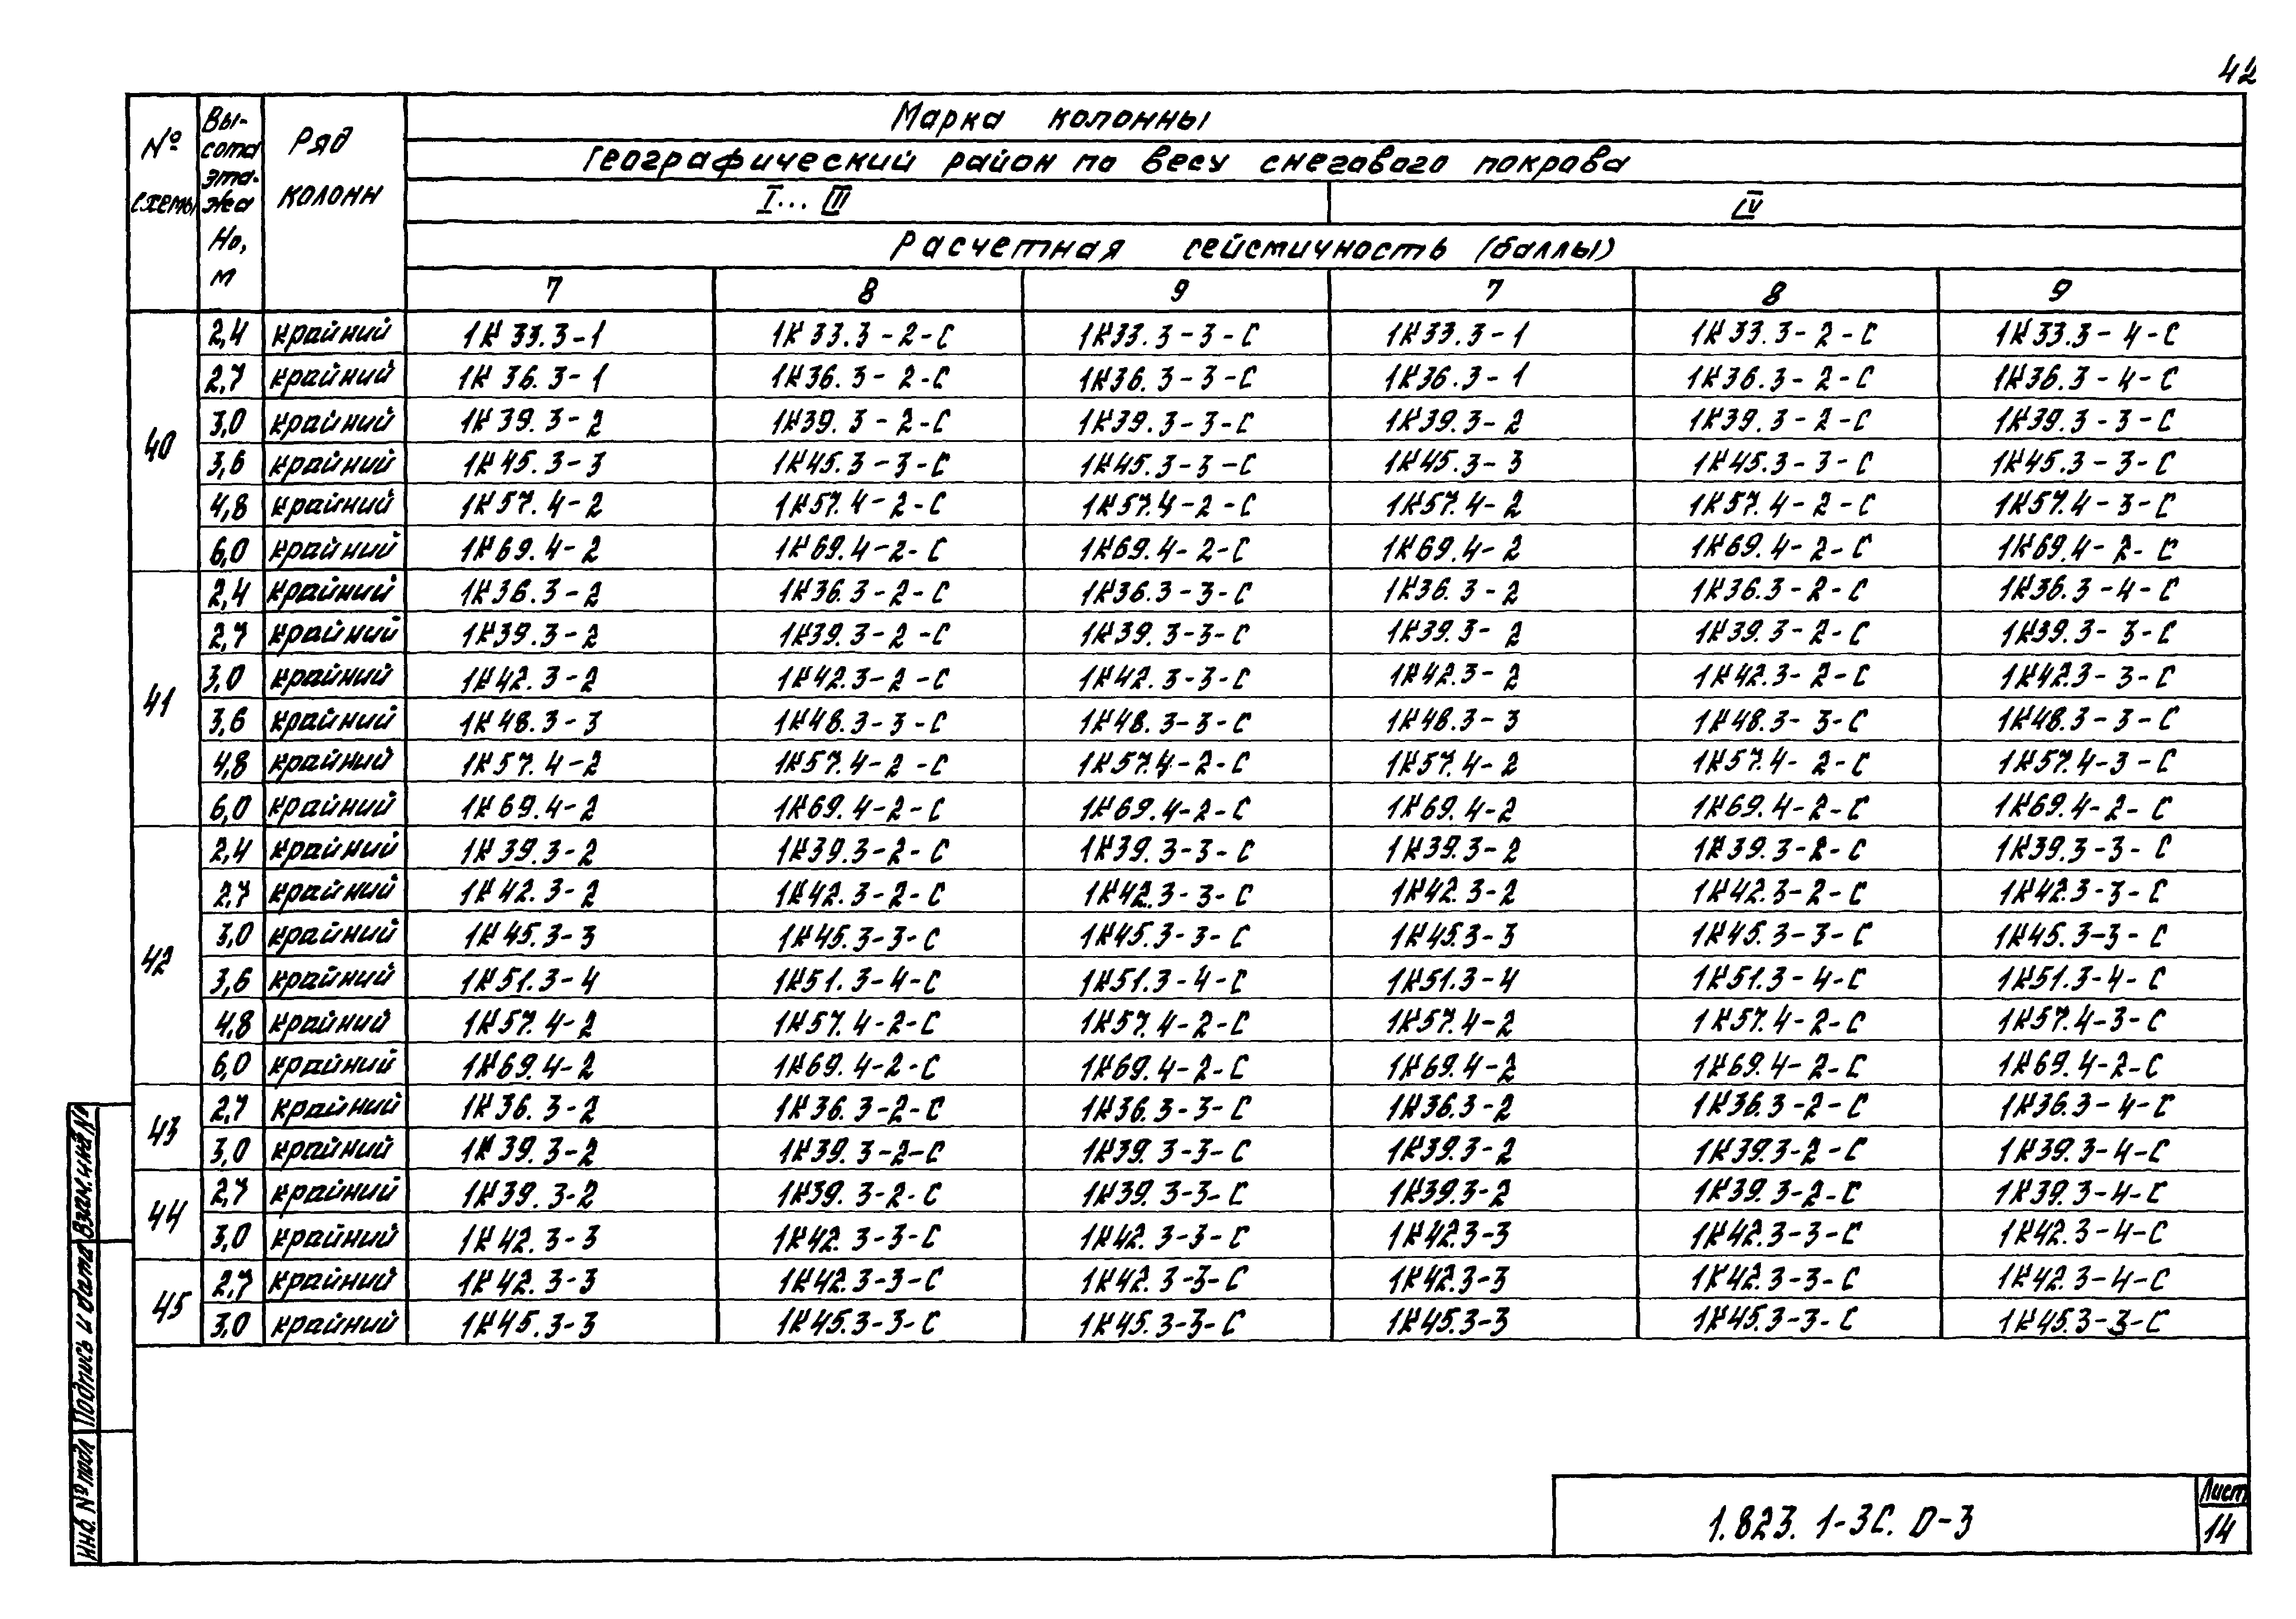 42
№ схемы | Вы-сота эта-жа Но, м | Ряд колонн | Марка колонны
Географический район по весу снегового покрова
I... III | IV
Расчетная сейсмичность (баллы)
7 | 8 | 9 | 7 | 8 | 9
40 | 2,4 | крайний | 1К33.3-1 | 1К33.3-2-С | 1К33.3-3-С | 1К33.3-1 | 1К33.3-2-С | 1К33.3-4-С
2,7 | крайний | 1К36.3-1 | 1К36.3-2-С | 1К36.3-3-С | 1К36.3-1 | 1К36.3-2-С | 1К36.3-4-С
3,0 | крайний | 1К39.3-2 | 1К39.3-2-С | 1К39.3-3-С | 1К39.3-2 | 1К39.3-2-С | 1К39.3-3-С
3,6 | крайний | 1К45.3-3 | 1К45.3-3-С | 1К45.3-3-С | 1К45.3-3 | 1К45.3-3-С | 1К45.3-3-С
4,8 | крайний | 1К57.4-2 | 1К57.4-2-С | 1К57.4-2-С | 1К57.4-2 | 1К57.4-2-С | 1К57.4-3-С
6,0 | крайний | 1К69.4-2 | 1К69.4-2-С | 1К69.4-2-С | 1К69.4-2 | 1К69.4-2-С | 1К69.4-2-С
41 | 2,4 | крайний | 1К36.3-2 | 1К36.3-2-С | 1К36.3-3-С | 1К36.3-2 | 1К36.3-2-С | 1К36.3-4-С
2,7 | крайний | 1К39.3-2 | 1К39.3-2-С | 1К39.3-3-С | 1К39.3-2 | 1К39.3-2-С | 1К39.3-3-С
3,0 | крайний | 1К42.3-2 | 1К42.3-2-С | 1К42.3-3-С | 1К42.3-2 | 1К42.3-2-С | 1К42.3-3-С
3,6 | крайний | 1К48.3-3 | 1К48.3-3-С | 1К48.3-3-С | 1К48.3-3 | 1К48.3-3-С | 1К48.3-3-С
4,8 | крайний | 1К57.4-2 | 1К57.4-2-С | 1К57.4-2-С | 1К57.4-2 | 1К57.4-2-С | 1К57.4-3-С
6,0 | крайний | 1К69.4-2 | 1К69.4-2-С | 1К69.4-2-С | 1К69.4-2 | 1К69.4-2-С | 1К69.4-2-С
42 | 2,4 | крайний | 1К39.3-2 | 1К39.3-2-С | 1К39.3-3-С | 1К39.3-2 | 1К39.3-2-С | 1К39.3-3-С
2,7 | крайний | 1К42.3-2 | 1К42.3-2-С | 1К42.3-3-С | 1К42.3-2 | 1К42.3-2-С | 1К42.3-3-С
3,0 | крайний | 1К45.3-3 | 1К45.3-3-С | 1К45.3-3-С | 1К45.3-3 | 1К45.3-3-С | 1К45.3-3-С
3,6 | крайний | 1К51.3-4 | 1К51.3-4-С | 1К51.3-4-С | 1К51.3-4 | 1К51.3-4-С | 1К51.3-4-С
4,8 | крайний | 1К57.4-2 | 1К57.4-2-С | 1К57.4-2-С | 1К57.4-2 | 1К57.4-2-С | 1К57.4-3-С
6,0 | крайний | 1К69.4-2 | 1К69.4-2-С | 1К69.4-2-С | 1К69.4-2 | 1К69.4-2-С | 1К69.4-2-С
43 | 2,7 | крайний | 1К36.3-2 | 1К36.3-2-С | 1К36.3-3-С | 1К36.3-2 | 1К36.3-2-С | 1К36.3-4-С
3,0 | крайний | 1К39.3-2 | 1К39.3-2-С | 1К39.3-3-С | 1К39.3-2 | 1К39.3-2-С | 1К39.3-4-С
44 | 2,7 | крайний | 1К39.3-2 | 1К39.3-2-С | 1К39.3-3-С | 1К39.3-2 | 1К39.3-2-С | 1К39.3-4-С
3,0 | крайний | 1К42.3-3 | 1К42.3-3-С | 1К42.3-3-С | 1К42.3-3 | 1К42.3-3-С | 1К42.3-4-С
45 | 2,7 | крайний | 1К42.3-3 | 1К42.3-3-С | 1К42.3-3-С | 1К42.3-3 | 1К42.3-3-С | 1К42.3-4-С
3,0 | крайний | 1К45.3-3 | 1К45.3-3-С | 1К45.3-3-С | 1К45.3-3 | 1К45.3-3-С | 1К45.3-3-С
Инв. № подл | Подпись и дата | Взам. инв №
1.823. 1-3С. 0-3
Лист
14